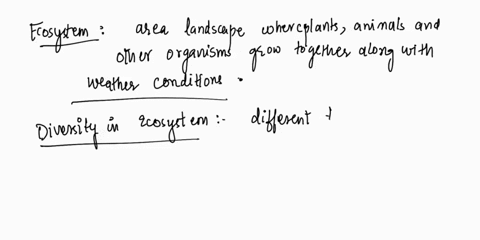 Ecosystem : area landscape where plants, animals and
other organisms grow together along with
weather conditions .
Diversity in Ecosystem :- different